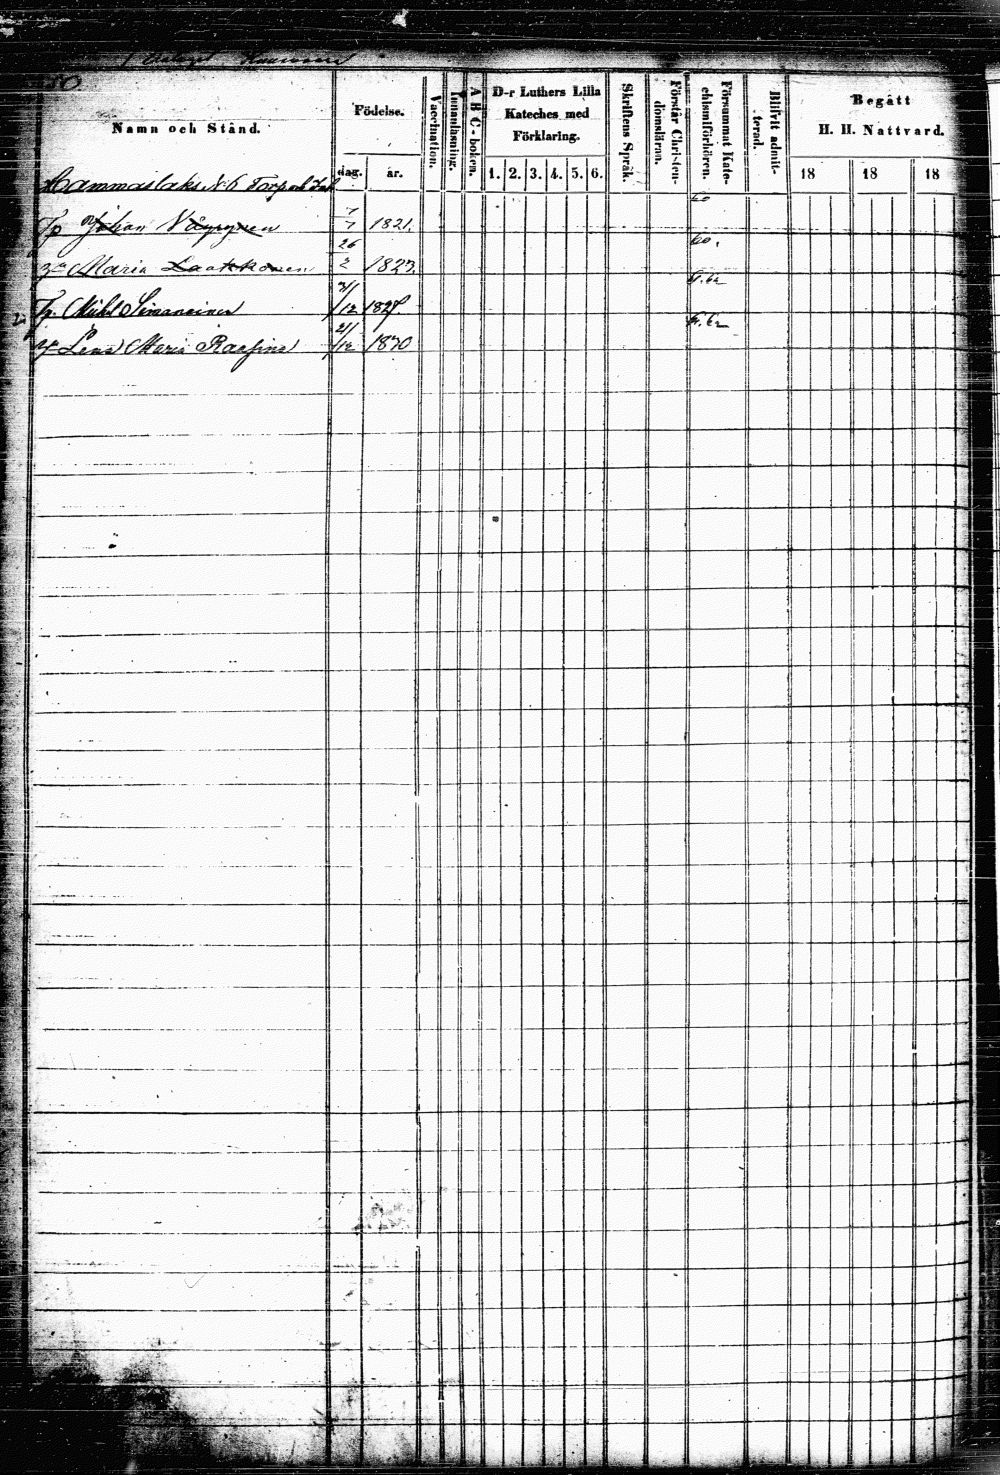 80
Namn och Stånd.
Födelse.
dag.
år.
Vaccination.
Innanläsning.
A B C-boken.
D-r Luthers Lilla
Kateches med
Förklaring.
1. 2. 3. 4. 5. 6.
Skriftens Språk.
Förstår Christen-
domsläran.
Försummat Kate-
chismiförhören.
Blifvit admit-
terad.
Begått
H. H. Nattvard.
18 18 18
Hammaslaks N:6 Torp
Tp Johan Väyrynen 7/7 1821. 60
Maria Laakkonen 26/2 1823. 60.
Tp. Mikl Simaneinen 31/12 182
Lena Maria 21/12 1830